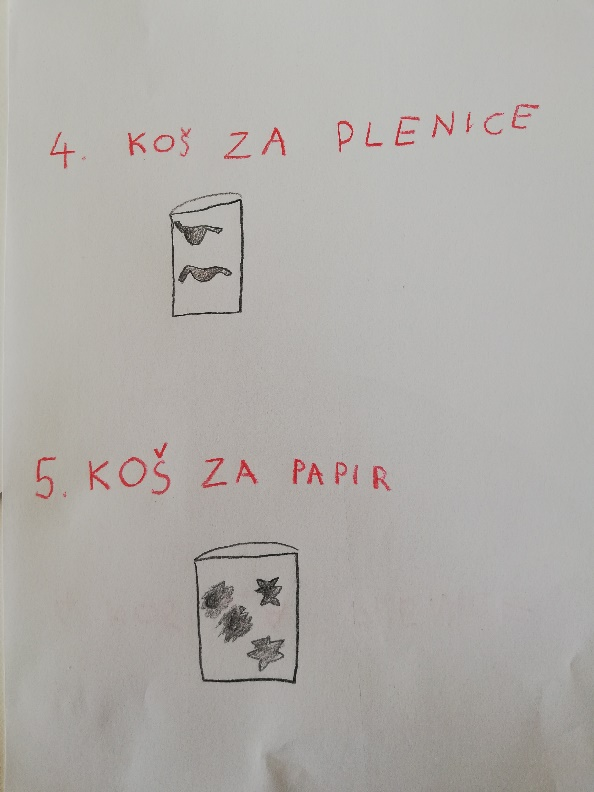 4. KOŠ ZA PLENICE
5. KOŠ ZA PAPIR